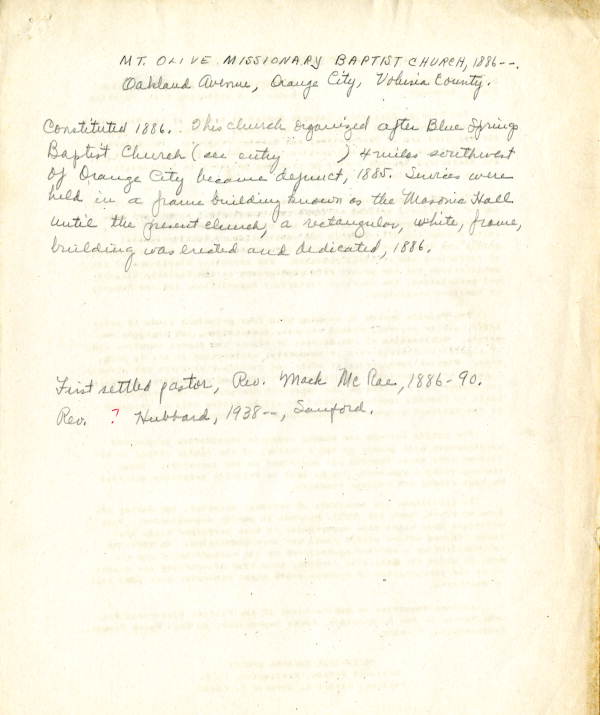 MT. OLIVE MISSIONARY BAPTIST CHURCH, 1886--.
Oakland Avenue, Orange City, Volusia County.
Constituted 1886. This church organized after Blue Springs
Baptist Church (see entry ) 4 miles southwest
of Orange City became defunct, 1885. Services were
held in a frame building known as the Masonic Hall
until the present church, a rectangular, white, frame,
building was erected and dedicated, 1886.
First settled pastor, Rev. Mack McRae, 1886-90.
Rev. ? Hubbard, 1938--, Sanford.